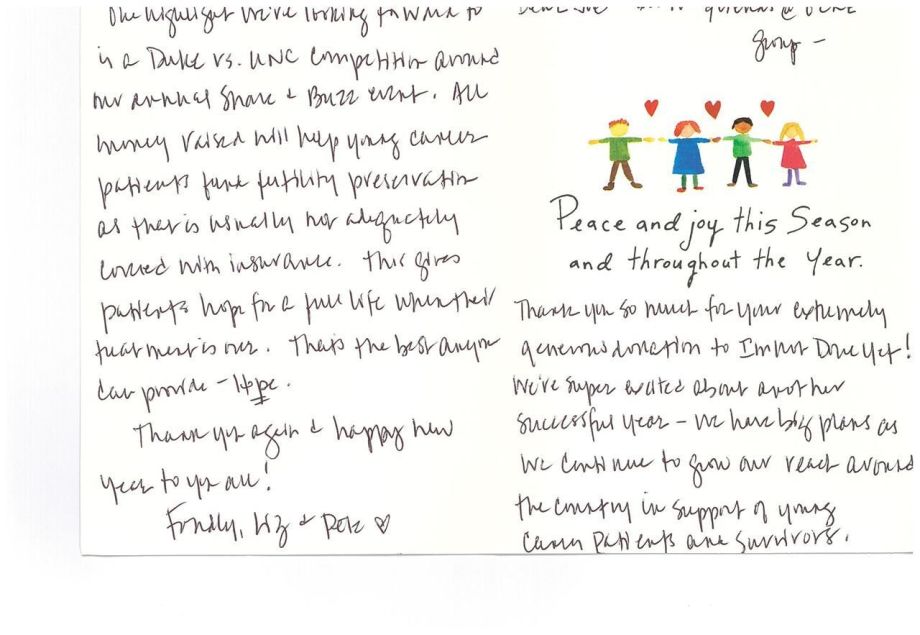 Group –
Peace and joy this Season
and throughout the Year.
Thank you so much for your extremely
generous donation to I'm Not Done Yet!
We're super excited about another
successful year – we have big plans as
we continue to grow our reach around
the country in support of young
cancer patients and survivors.
The highlight we're looking forward to
is a Duke vs. UNC competition around
our annual Shave & Buzz event. All
money raised will help young cancer
patients fund fertility preservation
as that is usually not adequately
covered with insurance. This gives
patients hope for a full life when their
treatment is over. That's the best anyone
can provide – Hope.
Thank you again & happy new
year to you all!
Fondly, Liz & Pete